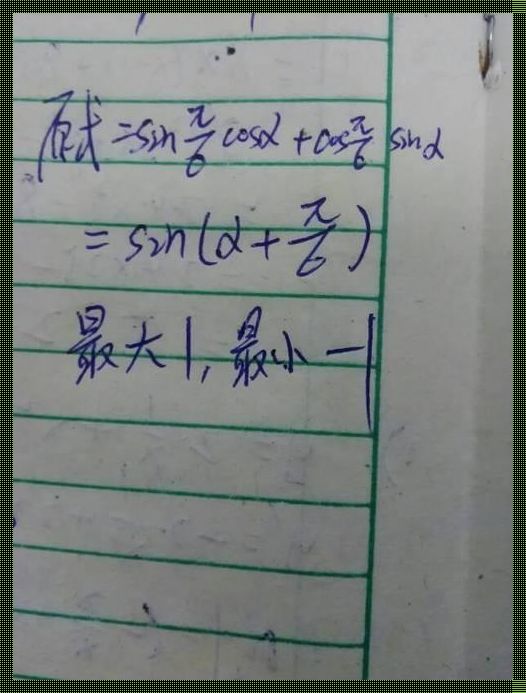 原式=sin π/6 cosα+cos π/6 sinα
=sin(α+π/6)
最大1,最小-1